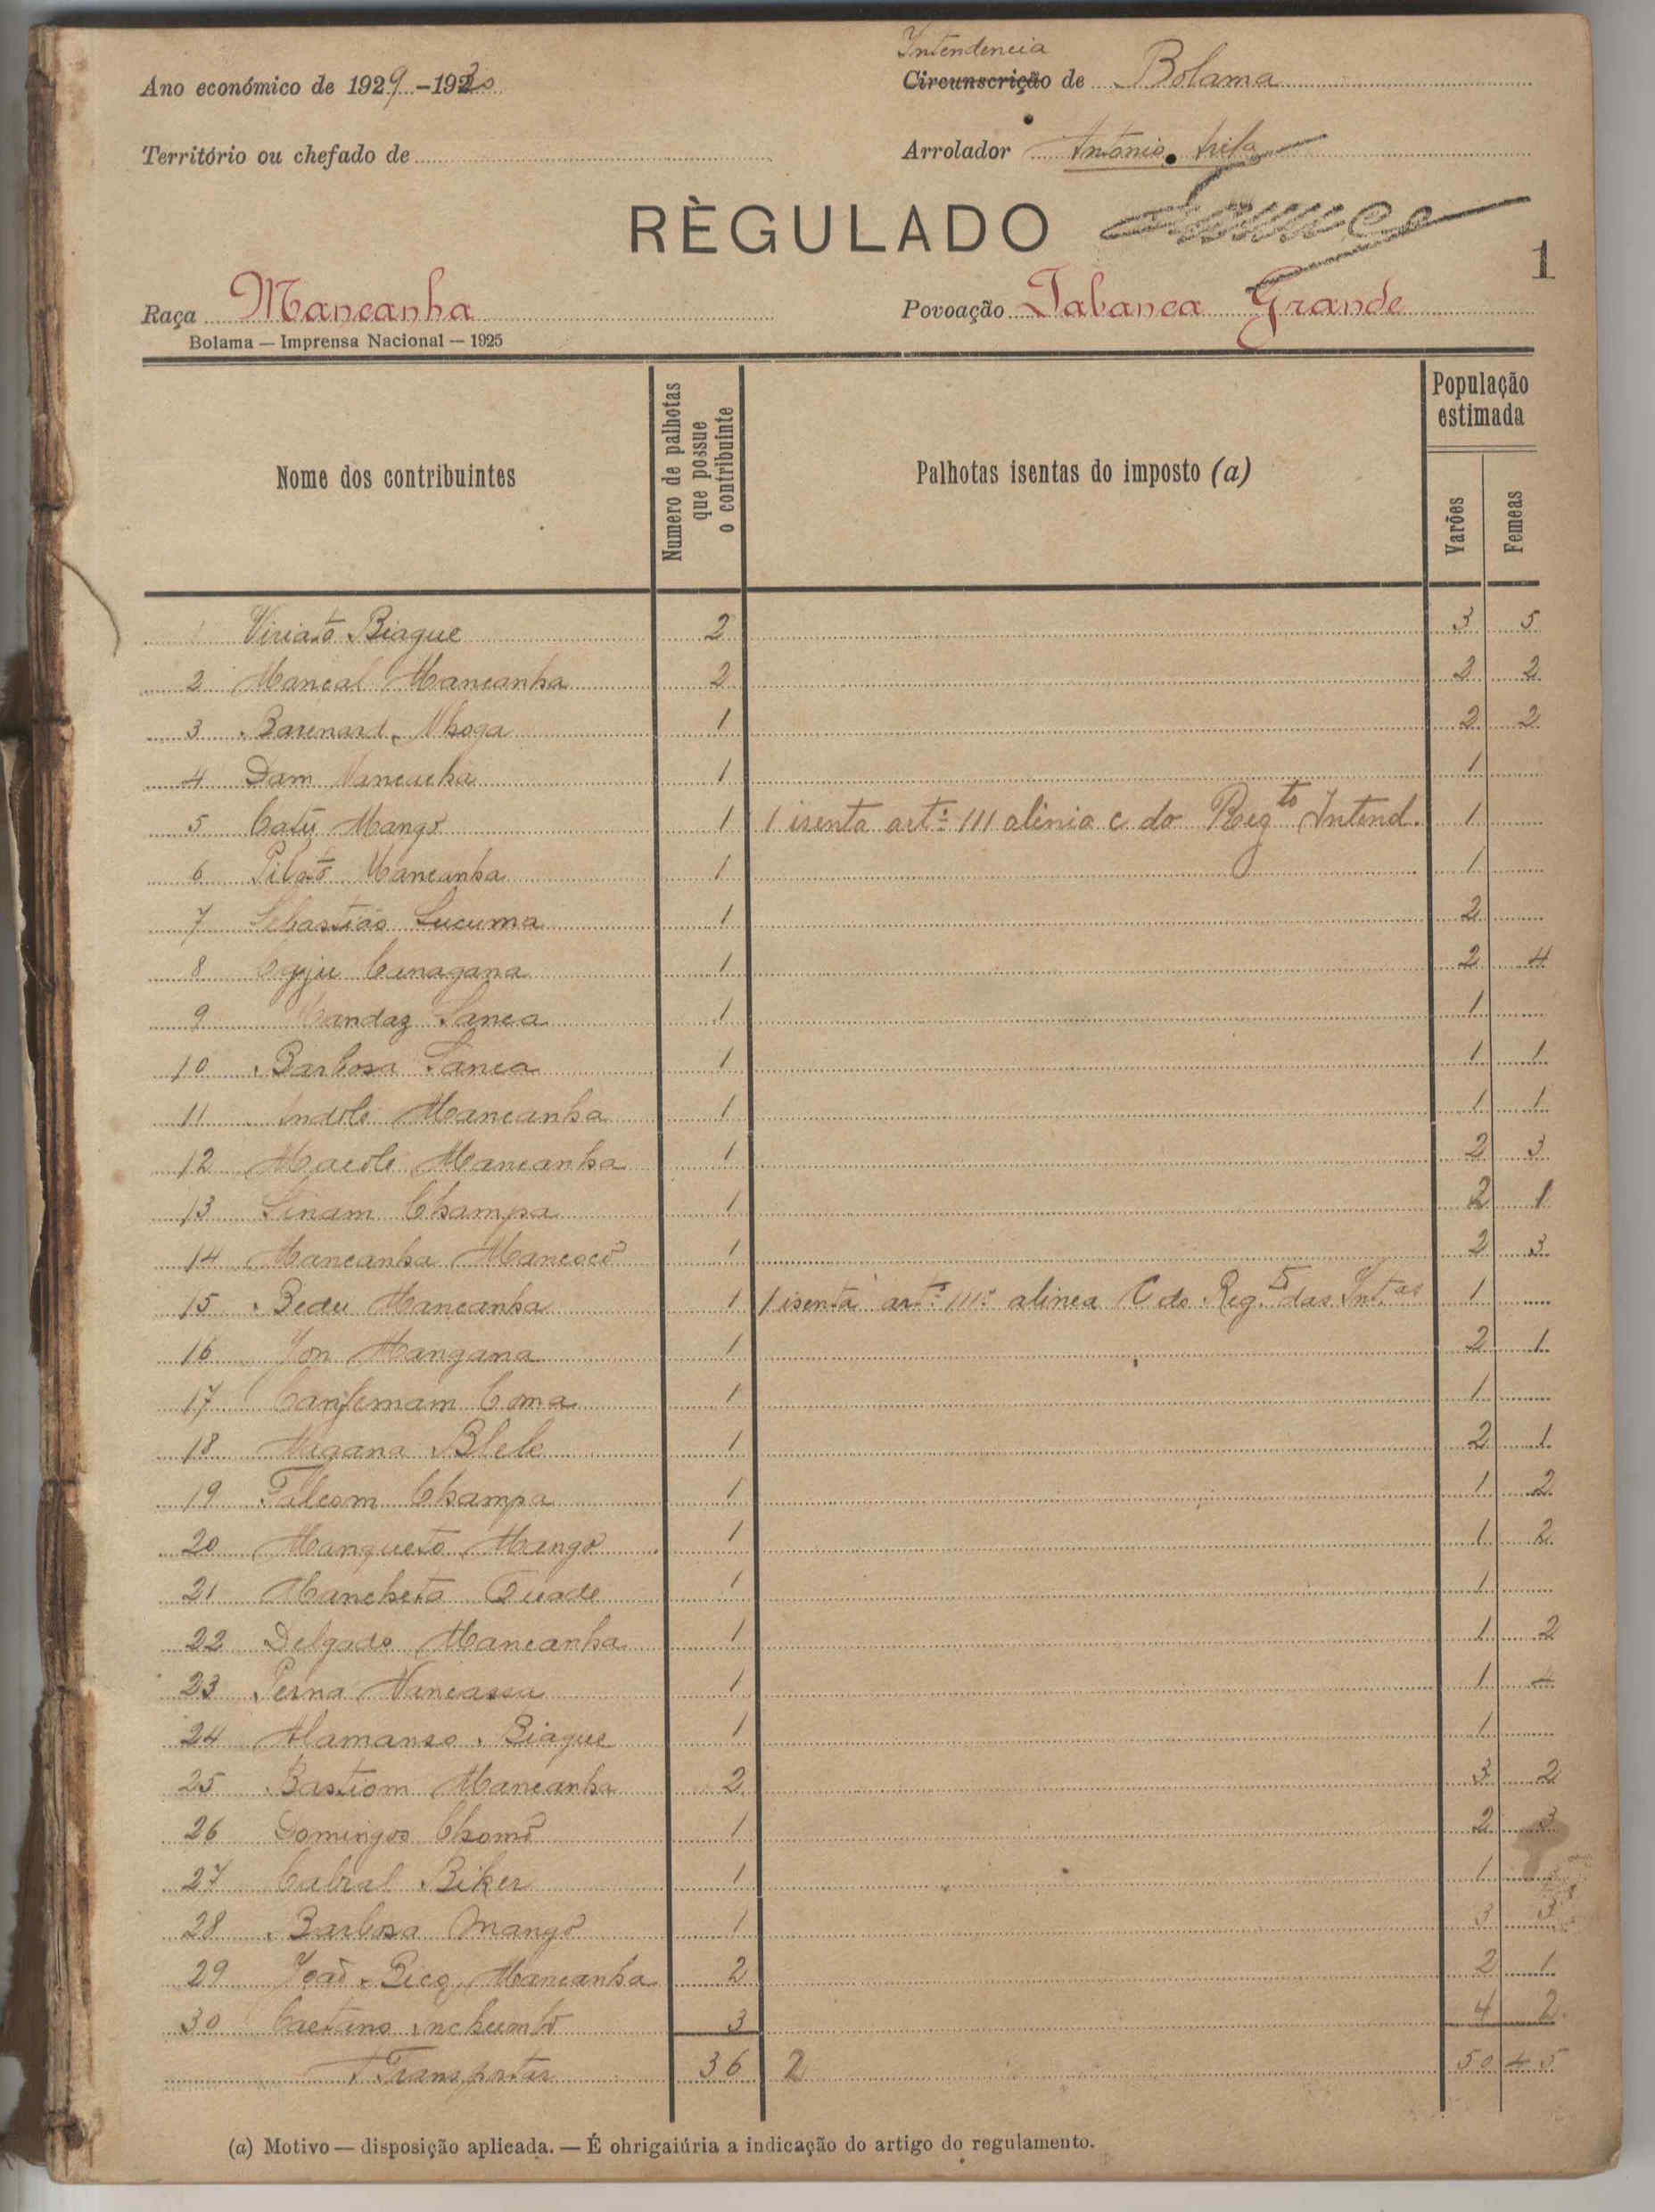 Intendencia
Ano económico de 1929–1930
Circunscrição de Bolama
Território ou chefado de
Arrolador António
RÈGULADO
1
Raça Mancanha
Povoação Tabanca Grande
Bolama — Imprensa Nacional — 1925
Nome dos contribuintes
Numero de palhotas que possue o contribuinte
Palhotas isentas do imposto (a)
População estimada
Varões
Femeas
1 Viriato Biague 2 3 5
2 Mancal Mancanha 2 2 2
3 Barenard Nhoga 1 2 2
4 Dam 1 1
5 Catú Mangô 1 1 isenta artº 111 alinia c do Regto Intend. 1
6 Pilatô Mancanha 1 1
7 Sebastião Lucuma 1 2
8 Cenagana 1 2 4
9 Mandaz Lanca 1 1
10 Barbosa Lanca 1 1 1
11 Indolé Mancanha 1 1 1
12 Macolé Mancanha 1 2 3
13 Sinam Champa 1 2 1
14 Mancanha Mancocô 1 2 3
15 Bedu Mancanha 1 1 isenta artº 111º alinea C do Reg.to das Int.as 1
16 Jon Mangana 1 2 1
17 Canfernam Coma 1 1
18 Nagana Blele 1 2 1
19 Falcom Champa 1 1 2
20 Manqueto Mango 1 1 2
21 Mancheta Quade 1 1
22 Delgado Mancanha 1 1 2
23 Perna Vancassa 1 1 4
24 Alamanso Biague 1 1
25 Bastiom Mancanha 2 3 2
26 Domingos Chomô 1 2 3
27 Cabral Biker 1 1
28 Barbosa Mangô 1 3 3
29 João Bico Mancanha 2 2 1
30 Caetano Inchumbô 3 4 2
A Transportar 36 2 50 45
(a) Motivo — disposição aplicada. — É obrigaiúria a indicação do artigo do regulamento.